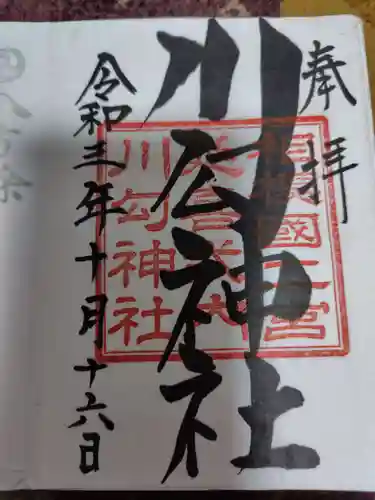 奉拝
川勾神社
令和三年十月十六日
相模國二宮
川勾神社